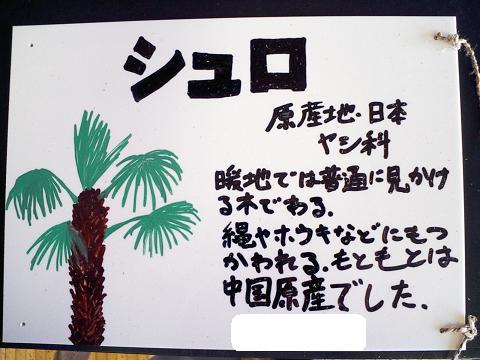 シュロ
原産地・日本
ヤシ科
暖地では普通に見かけ
る木である.
縄やホウキなどにもつ
かわれる.もともとは
中国原産でした.